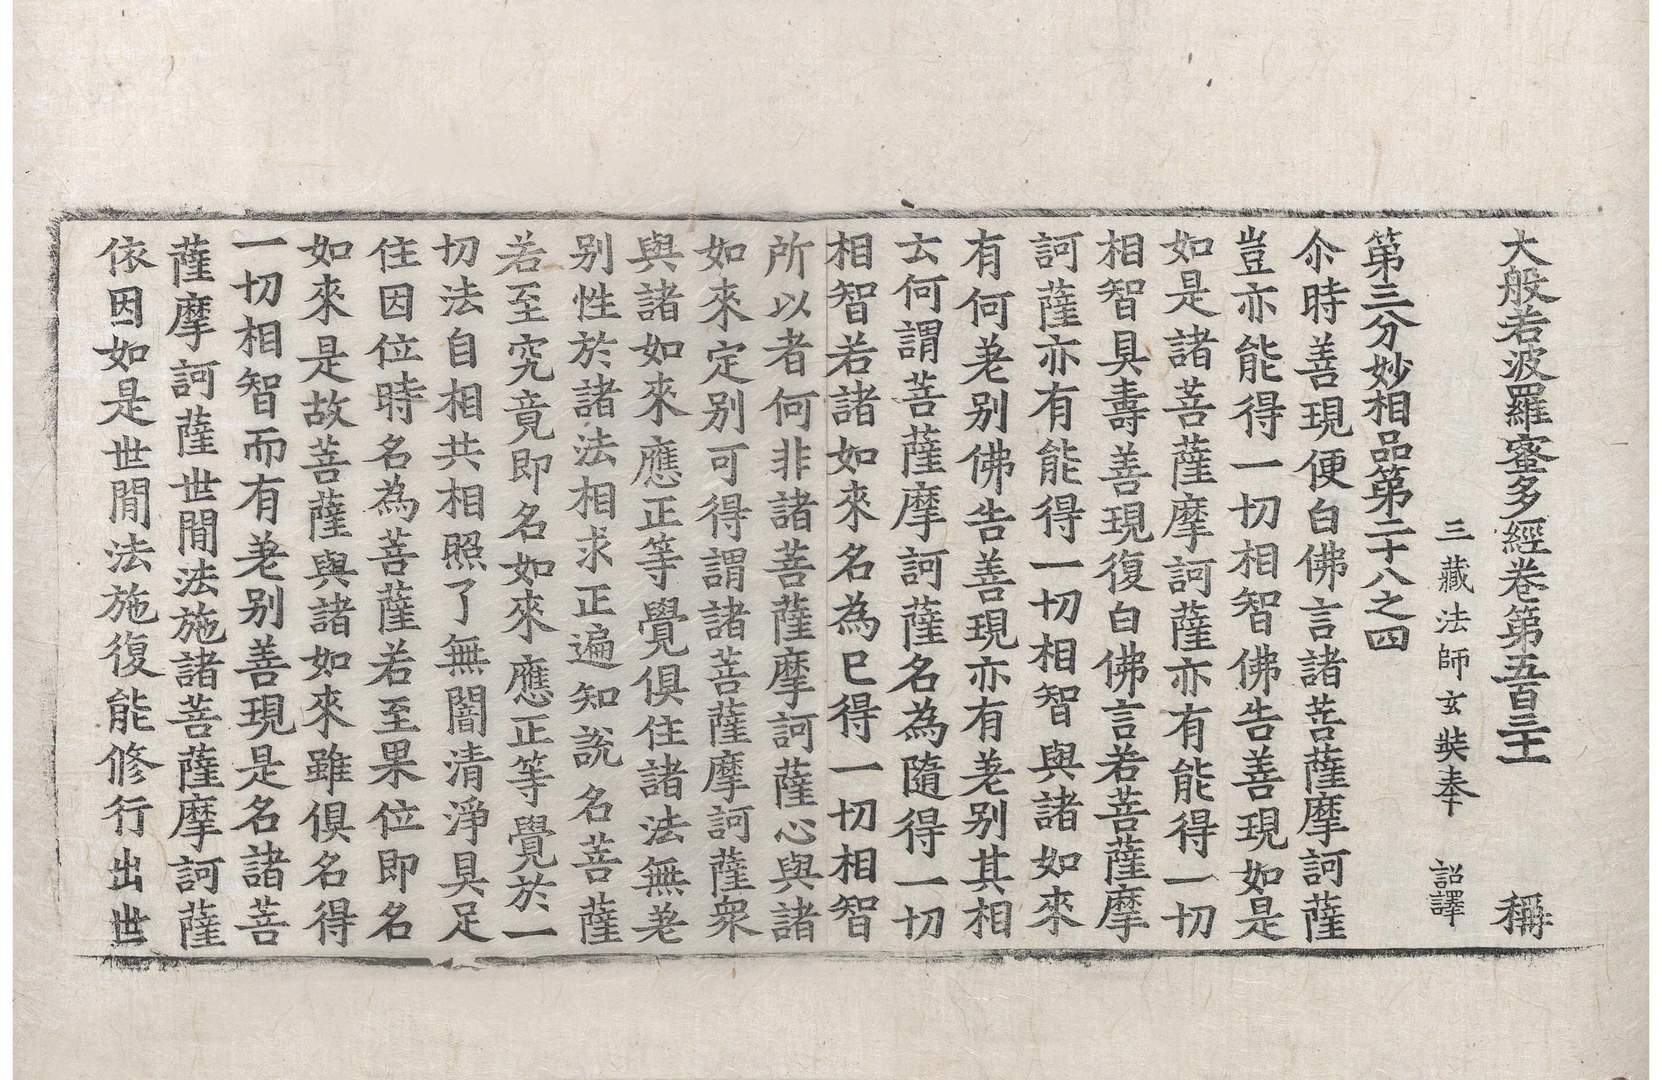 大般若波羅蜜多經卷第五百三十一 稱
三藏法師玄奘奉 詔譯
第三分妙相品第二十八之四
尒時善現便白佛言諸菩薩摩訶薩
豈亦能得一切相智佛告善現如是
如是諸菩薩摩訶薩亦有能得一切
相智具壽善現復白佛言若菩薩摩
訶薩亦有能得一切相智與諸如來
有何差别佛告善現亦有差别其相
云何謂菩薩摩訶薩名為隨得一切
相智若諸如來名為已得一切相智
所以者何非諸菩薩摩訶薩心與諸
如來定别可得謂諸菩薩摩訶薩衆
與諸如來應正等覺俱住諸法無差
别性於諸法相求正遍知說名菩薩
若至究竟即名如來應正等覺於一
切法自相共相照了無闇清淨具足
住因位時名為菩薩若至果位即名
如來是故菩薩與諸如來雖俱名得
一切相智而有差别善現是名諸菩
薩摩訶薩世間法施諸菩薩摩訶薩
依因如是世間法施復能修行出世